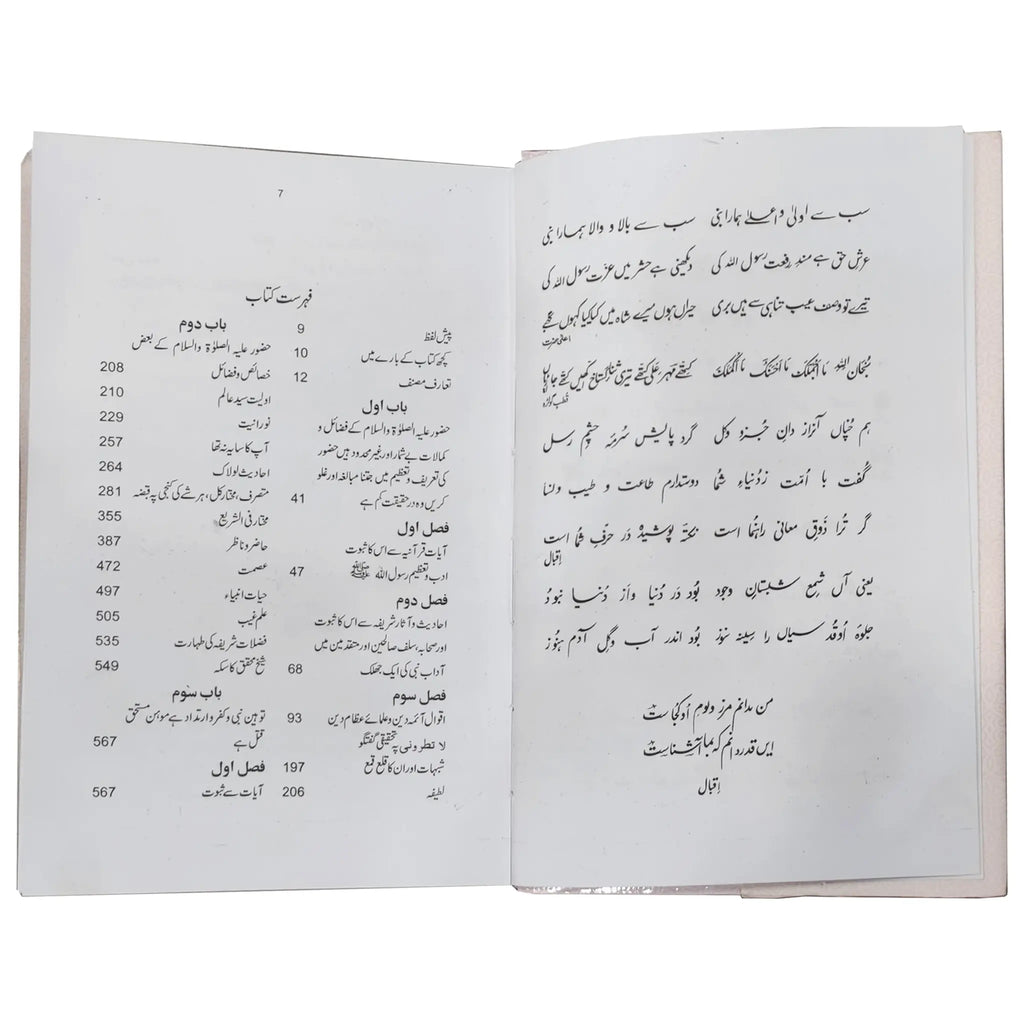 سب سے اولیٰ و اعلےٰ ہمارا نبی سب سے بالا و والا ہمارا نبی
عرشِ حق ہے مسندِ رفعت رسول اللہ کی دیکھنی ہے حشر میں عزت رسول اللہ کی
تیرے تو وصف عیب تناہی سے ہیں بری حیراں ہوں میرے شاہ میں کیا کیا کہوں تجھے
اعلیٰحضرت
سُبحان اللہ مَا اَجْمَلَكَ مَا اَحْسَنَكَ مَا اَكْمَلَكَ کتھے مہر علی کتھے تیری ثنا گستاخ اکھیں کتھے جا لڑیاں
قطب گولڑہ
ہم چُناں آنراز دانِ جُزو و کل گرد پایش سُرمۂ چشمِ رسل
گُفت با اُمّت زدُنیاءِ شُما دوستدارم طاعت و طیب و نسا
گر تُرا ذَوقِ معانی راہنُما است نکتۂ پوشیدہ در حرفِ شُما است
اقبال
یعنی آں شمعِ شبستانِ وجود بُود در دُنیا و از دُنیا نبود
جلوہ اُو قُدسیاں را سِینہ سَوز بُود اندر آب و گِل آدم ہنُوز
من ندانم مرز و بومِ اُو کجاست
ایں قدر دانم کہ باما آشناست
اقبال
7
فہرست کتاب
پیش لفظ 9
کچھ کتاب کے بارے میں 10
تعارف مصنف 12
باب اول
حضور علیہ الصلوٰۃ والسلام کے فضائل و
کمالات بے شمار اور غیر محدود ہیں حضور
کی تعریف و تعظیم میں جتنا مبالغہ اور غلو
کریں وہ در حقیقت کم ہے 41
فصل اول
آیات قرآنیہ سے اس کا ثبوت
ادب و تعظیم رسول اللہ ﷺ 47
فصل دوم
احادیث و آثار شریفہ سے اس کا ثبوت
اور صحابہ، سلف صالحین اور متقدمین میں
آداب نبی کی ایک جھلک 68
فصل سوم
اقوال آئمہ دین و علمائے عظام دین 93
لا تطرونی پہ تحقیقی گفتگو
شبہات اور ان کا قلع قمع 197
لطیفہ 206
باب دوم
حضور علیہ الصلوٰۃ والسلام کے بعض
خصائص و فضائل 208
اولیت سید عالم 210
نورانیت 229
آپ کا سایہ نہ تھا 257
احادیث لولاک 264
متصرف، مختار کل، ہر شے کی کنجی پہ قبضہ 281
مختار فی الشریع 355
حاضر و ناظر 387
عصمت 472
حیات انبیاء 497
علم غیب 505
فضلات شریفہ کی طہارت 535
شیخ محقق کا سکہ 549
باب سوم
توہین نبی و کفر و ارتداد ہے موہن مستحق
قتل ہے 567
فصل اول
آیات سے ثبوت 567